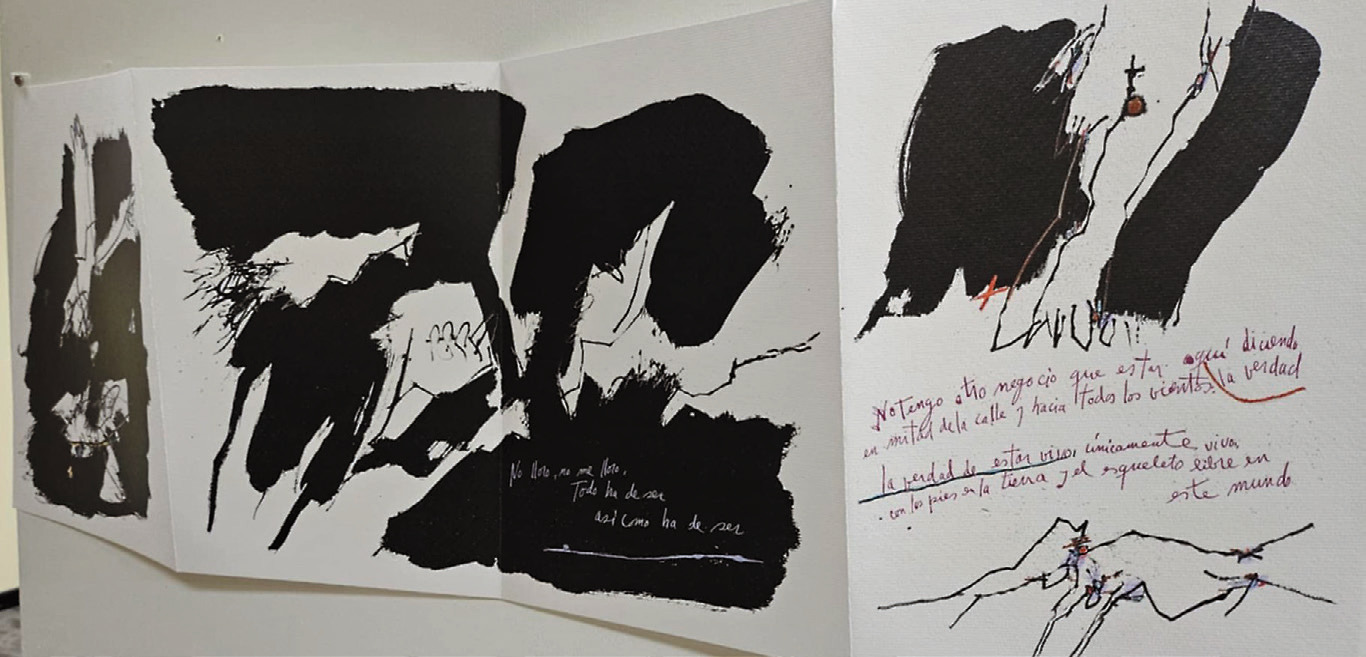 No lloro, no me lloro.
Todo ha de ser
así como ha de ser
No tengo otro negocio que estar aquí diciendo la verdad
en mitad de la calle y hacia todos los vientos:
la verdad de estar vivo, únicamente vivo,
con los pies en la tierra y el esqueleto libre en
este mundo